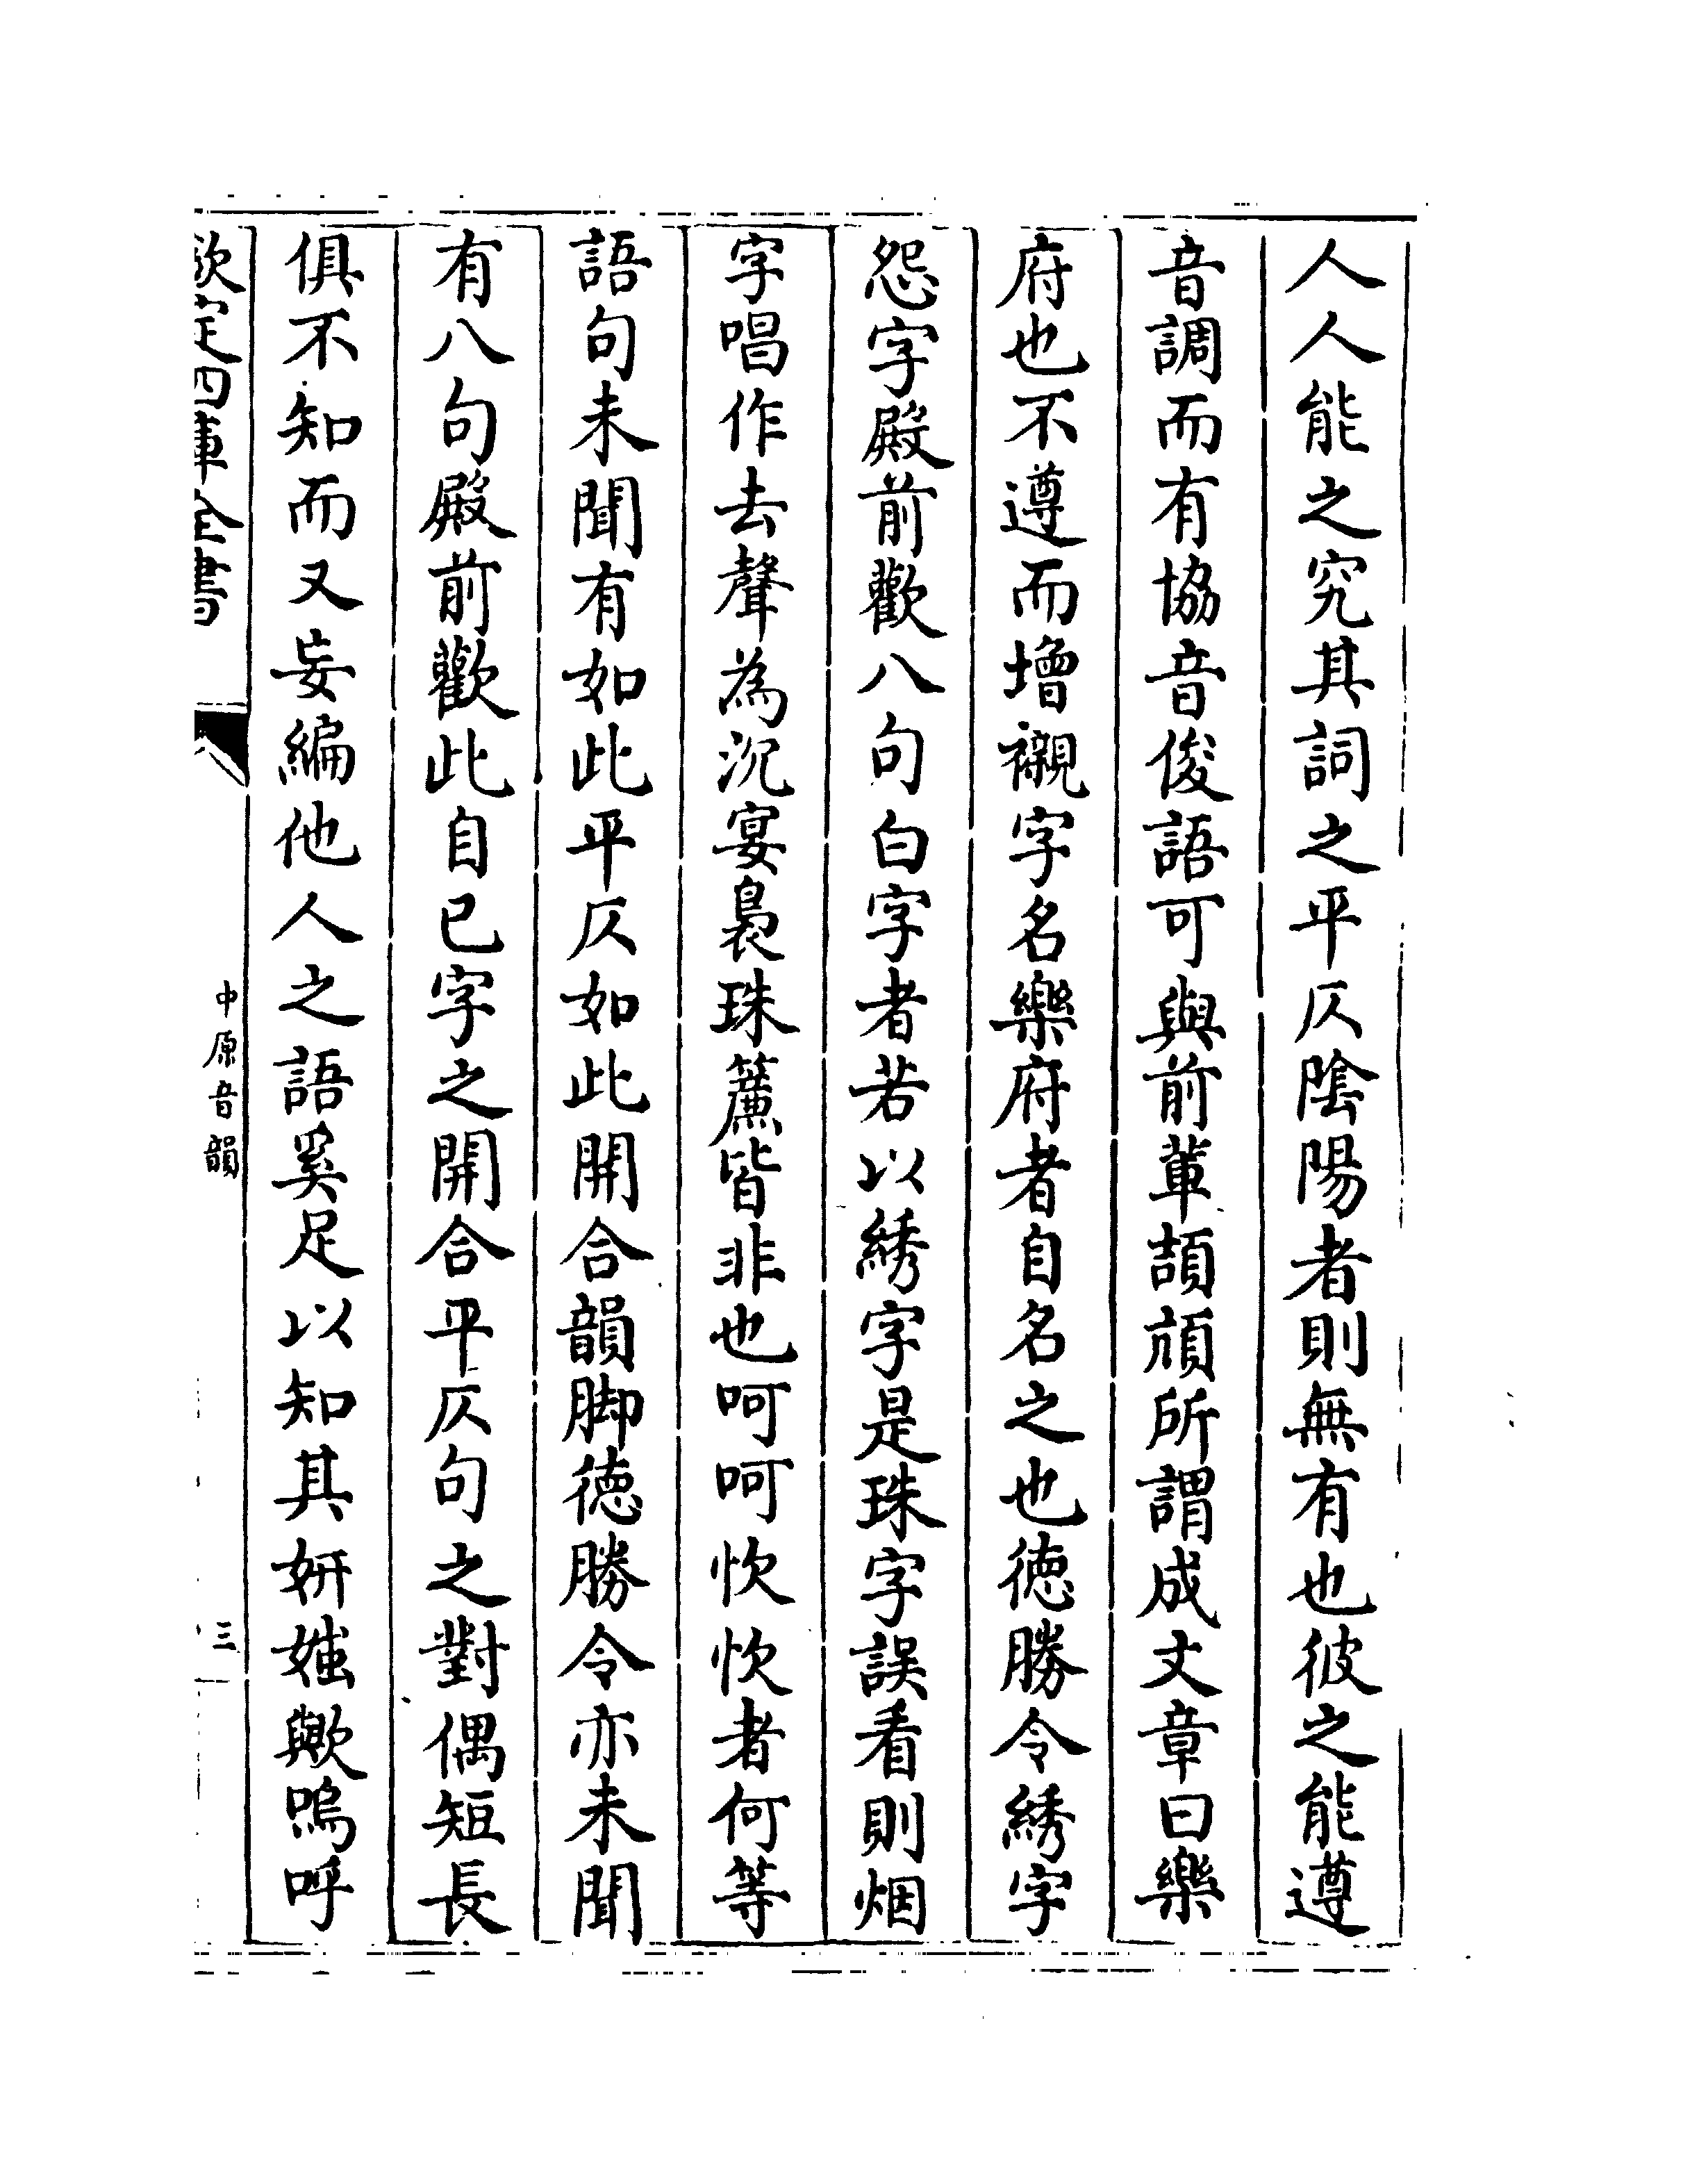 人人能之究其詞之平仄隂陽者則無有也彼之能遵
音調而有協音俊語可與前輩頡頏所謂成文章曰樂
府也不遵而增襯字名樂府者自名之也徳勝令綉字
怨字殿前歡八句白字者若以綉字是珠字誤看則烟
字唱作去聲為沉宴裊珠簾皆非也呵呵忺忺者何等
語句未聞有如此平仄如此開合韻脚徳勝令亦未聞
有八句殿前歡此自已字之開合平仄句之對偶短長
俱不知而又妄編他人之語奚足以知其妍媸歟嗚呼
欽定四庫全書
中原音韻
三